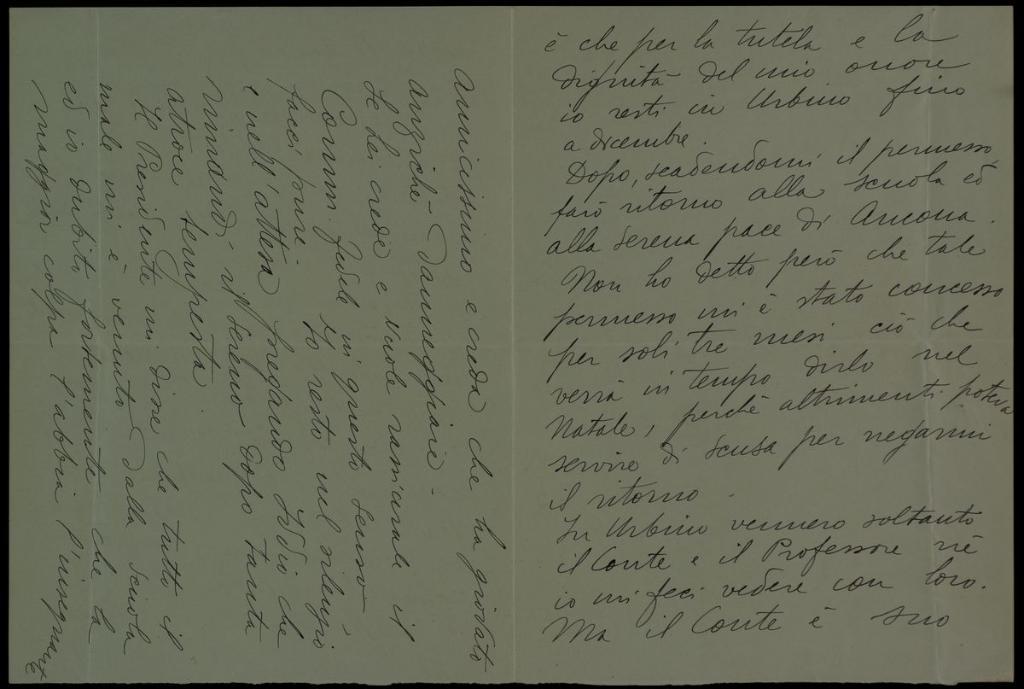 è che per la tutela e la
dignità del mio onore
io resti in Urbino fino
a dicembre.
Dopo, scadendomi il permesso,
farò ritorno alla scuola ed
alla serena pace di Ancona.
Non ho detto però che tale
permesso mi è stato concesso
per soli tre mesi ciò che
verrà in tempo dirlo nel
Natale, perchè altrimenti poteva
servire di scusa per negarmi
il ritorno.
In Urbino vennero soltanto
il Conte e il Professore nè
io mi feci vedere con loro.
Ma il Conte è suo
amicissimo e creda che ha giovato
anzichè danneggiare.
Se Lei crede e vuole rassicurate il
Comm. Fedele in questo senso
facci pure. Io resto nel silenzio
e nell'attesa pregando Iddio che
rimandi il sereno dopo tanta
atroce tempesta.
Il Presidente mi disse che tutto il
male mi è venuto dalla scuola
ed io dubito fortemente che la
maggior colpa l'abbia l'insegnante